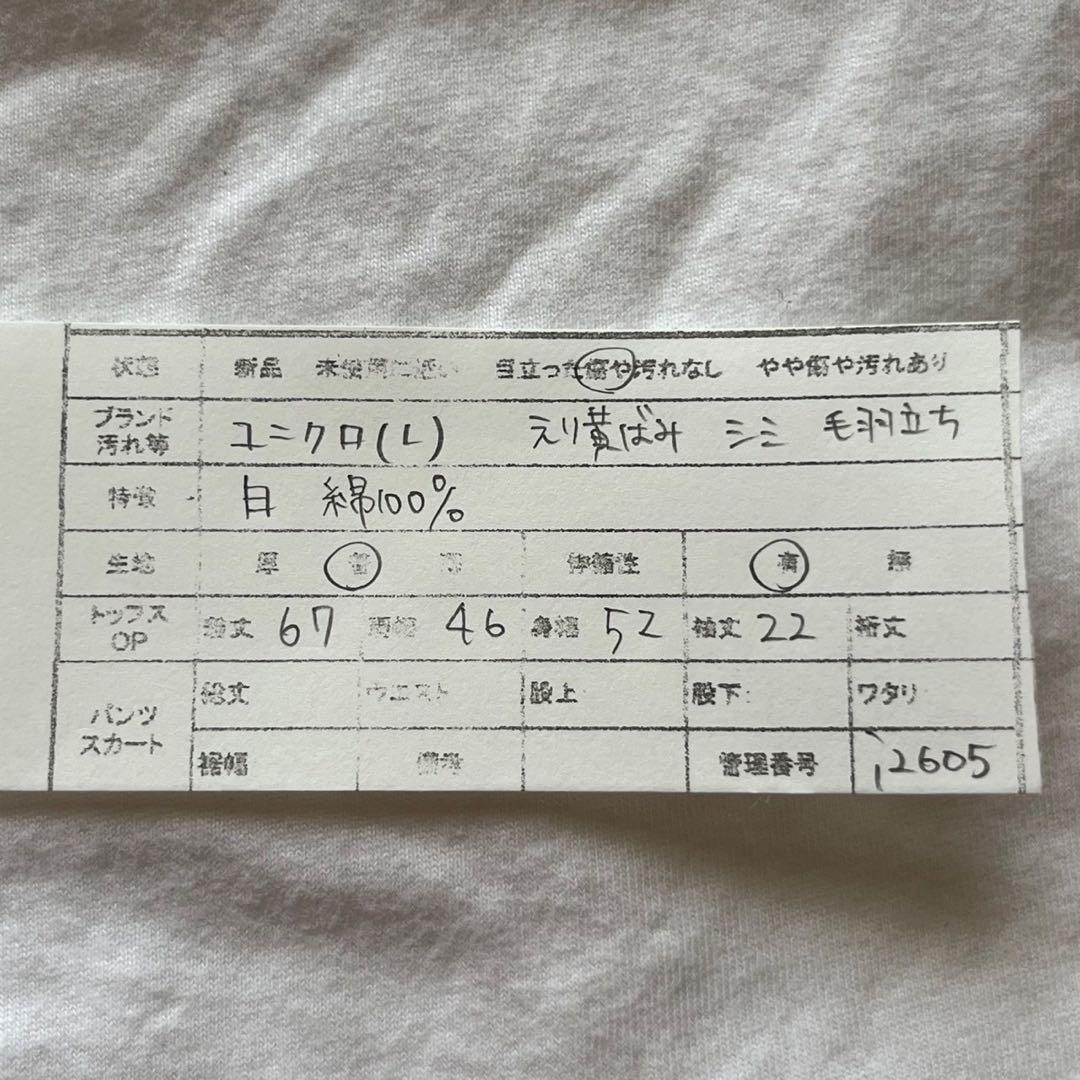 状態 新品 未使用に近い 目立った傷や汚れなし やや傷や汚れあり
ブランド
汚れ等 ユニクロ(L) えり黄ばみ シミ 毛羽立ち
特徴 白 綿100%
生地 厚 普 薄 伸縮性 有 無
トップス
OP 総丈 67 肩幅 46 身幅 52 袖丈 22 裄丈
パンツ
スカート 総丈 ウエスト 股上 股下 ワタリ
裾幅 備考 管理番号 i2605